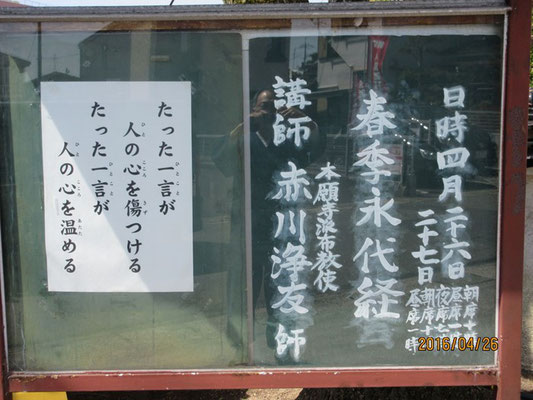 日時四月二十六日
朝席十時
昼席一時
夜席七時
二十七日
朝席十時
昼席一時
春季永代経
本願寺派布教使
講師 赤川浄友 師
たった一言が
人の心を傷つける
たった一言が
人の心を温める
2016/04/26